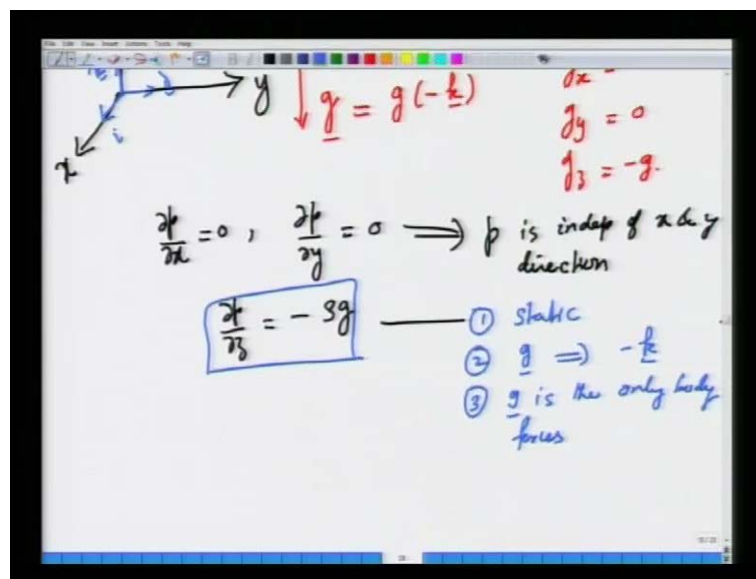 File Edit View Insert Actions Tools Help
y
g = g(-k)
g_y = 0
g_z = -g.
x
i
∂p/∂x = 0 , ∂p/∂y = 0 ⟹ p is indep of x & y
direction
∂p/∂z = - ρg
① static
② g ⟹ -k
③ g is the only body
forces